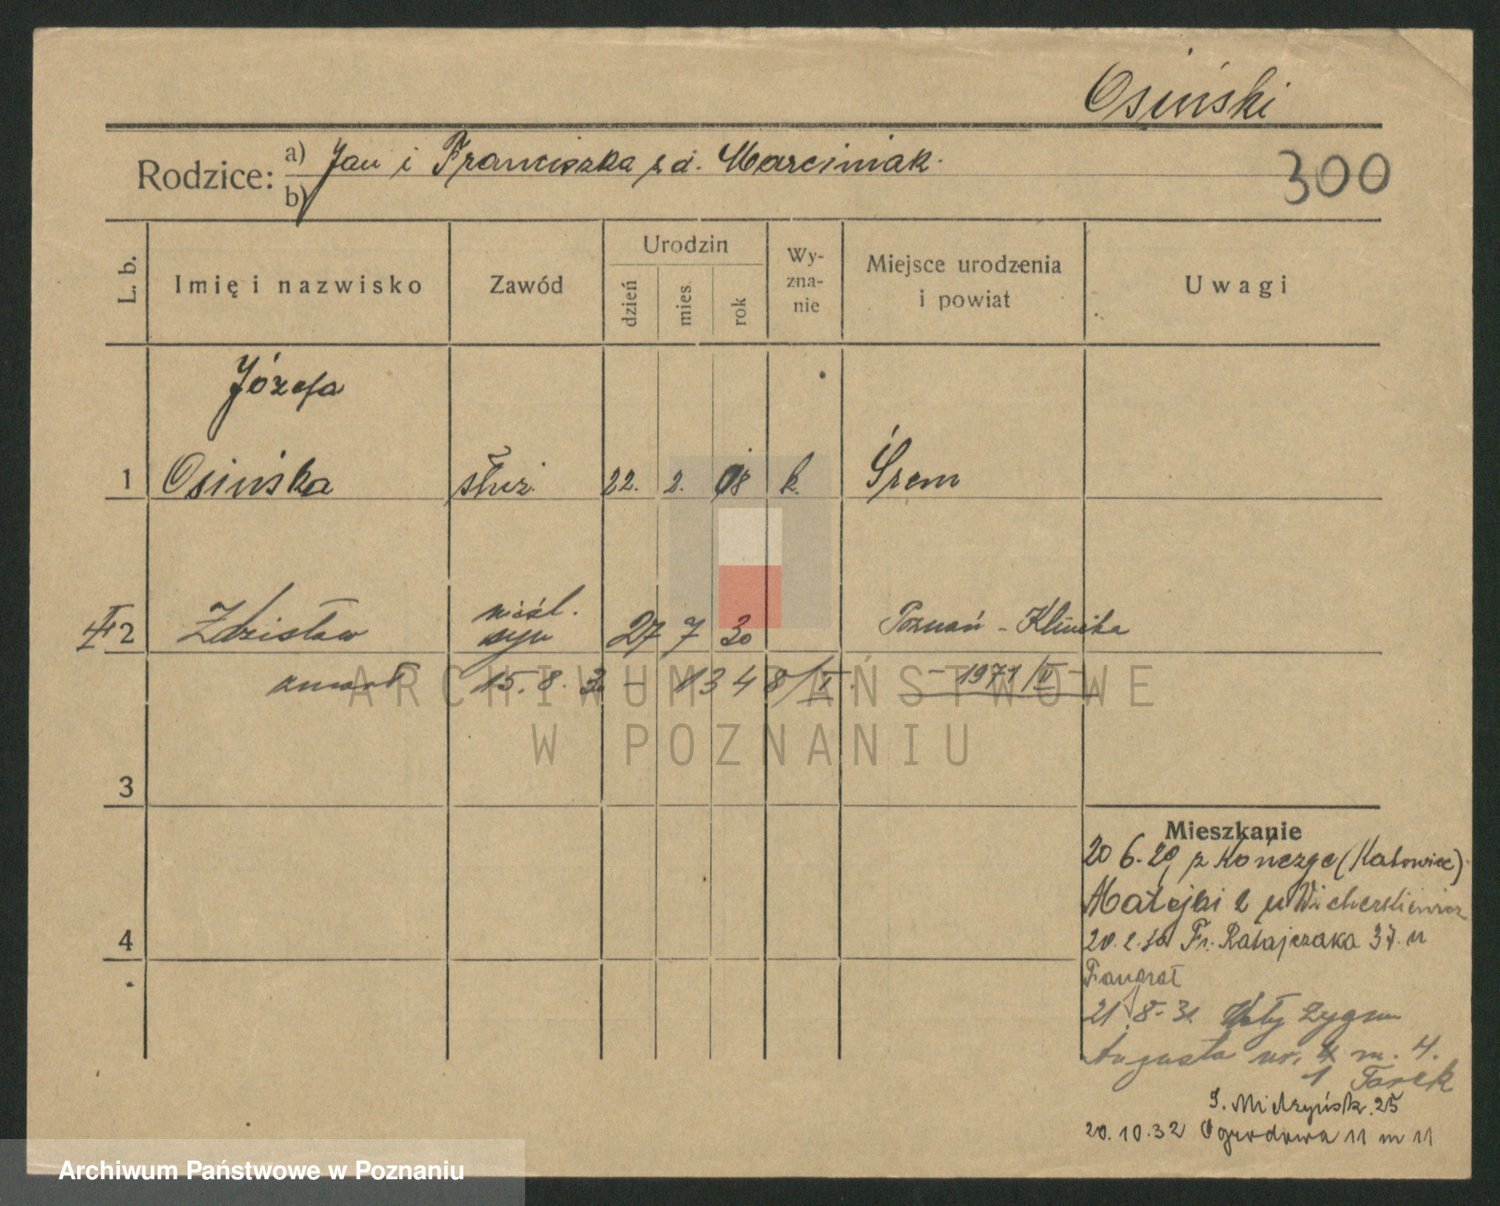 Osiński
Rodzice: a) Jan i Franciszka z d. Marciniak.
b)
300
L. b.
Imię i nazwisko
Zawód
Urodzin
dzień
mies.
rok
Wy-
zna-
nie
Miejsce urodzenia
i powiat
Uwagi
Józefa
1 Osińska służ. 22. 2. 08 k. Śrem
nieśl.
2 Zdzisław syn 27 7 30 Poznań - Klinika
zmarł 15. 8. 30 - 1348/I. - 1971/II -
ARCHIWUM PAŃSTWOWE
W POZNANIU
3
4
Mieszkanie
20 6. 29, z Kończyc (Katowice)
Matejki 2 u Wicherkiewicz
20. 2. 30 Fr. Ratajczaka 37. u
21. 8. 31. Zygm.
Augusta nr. 4 m. 4.
1
J. Mielżyńsk. 25
20. 10. 32 Ogrodowa 11 m 11
Archiwum Państwowe w Poznaniu